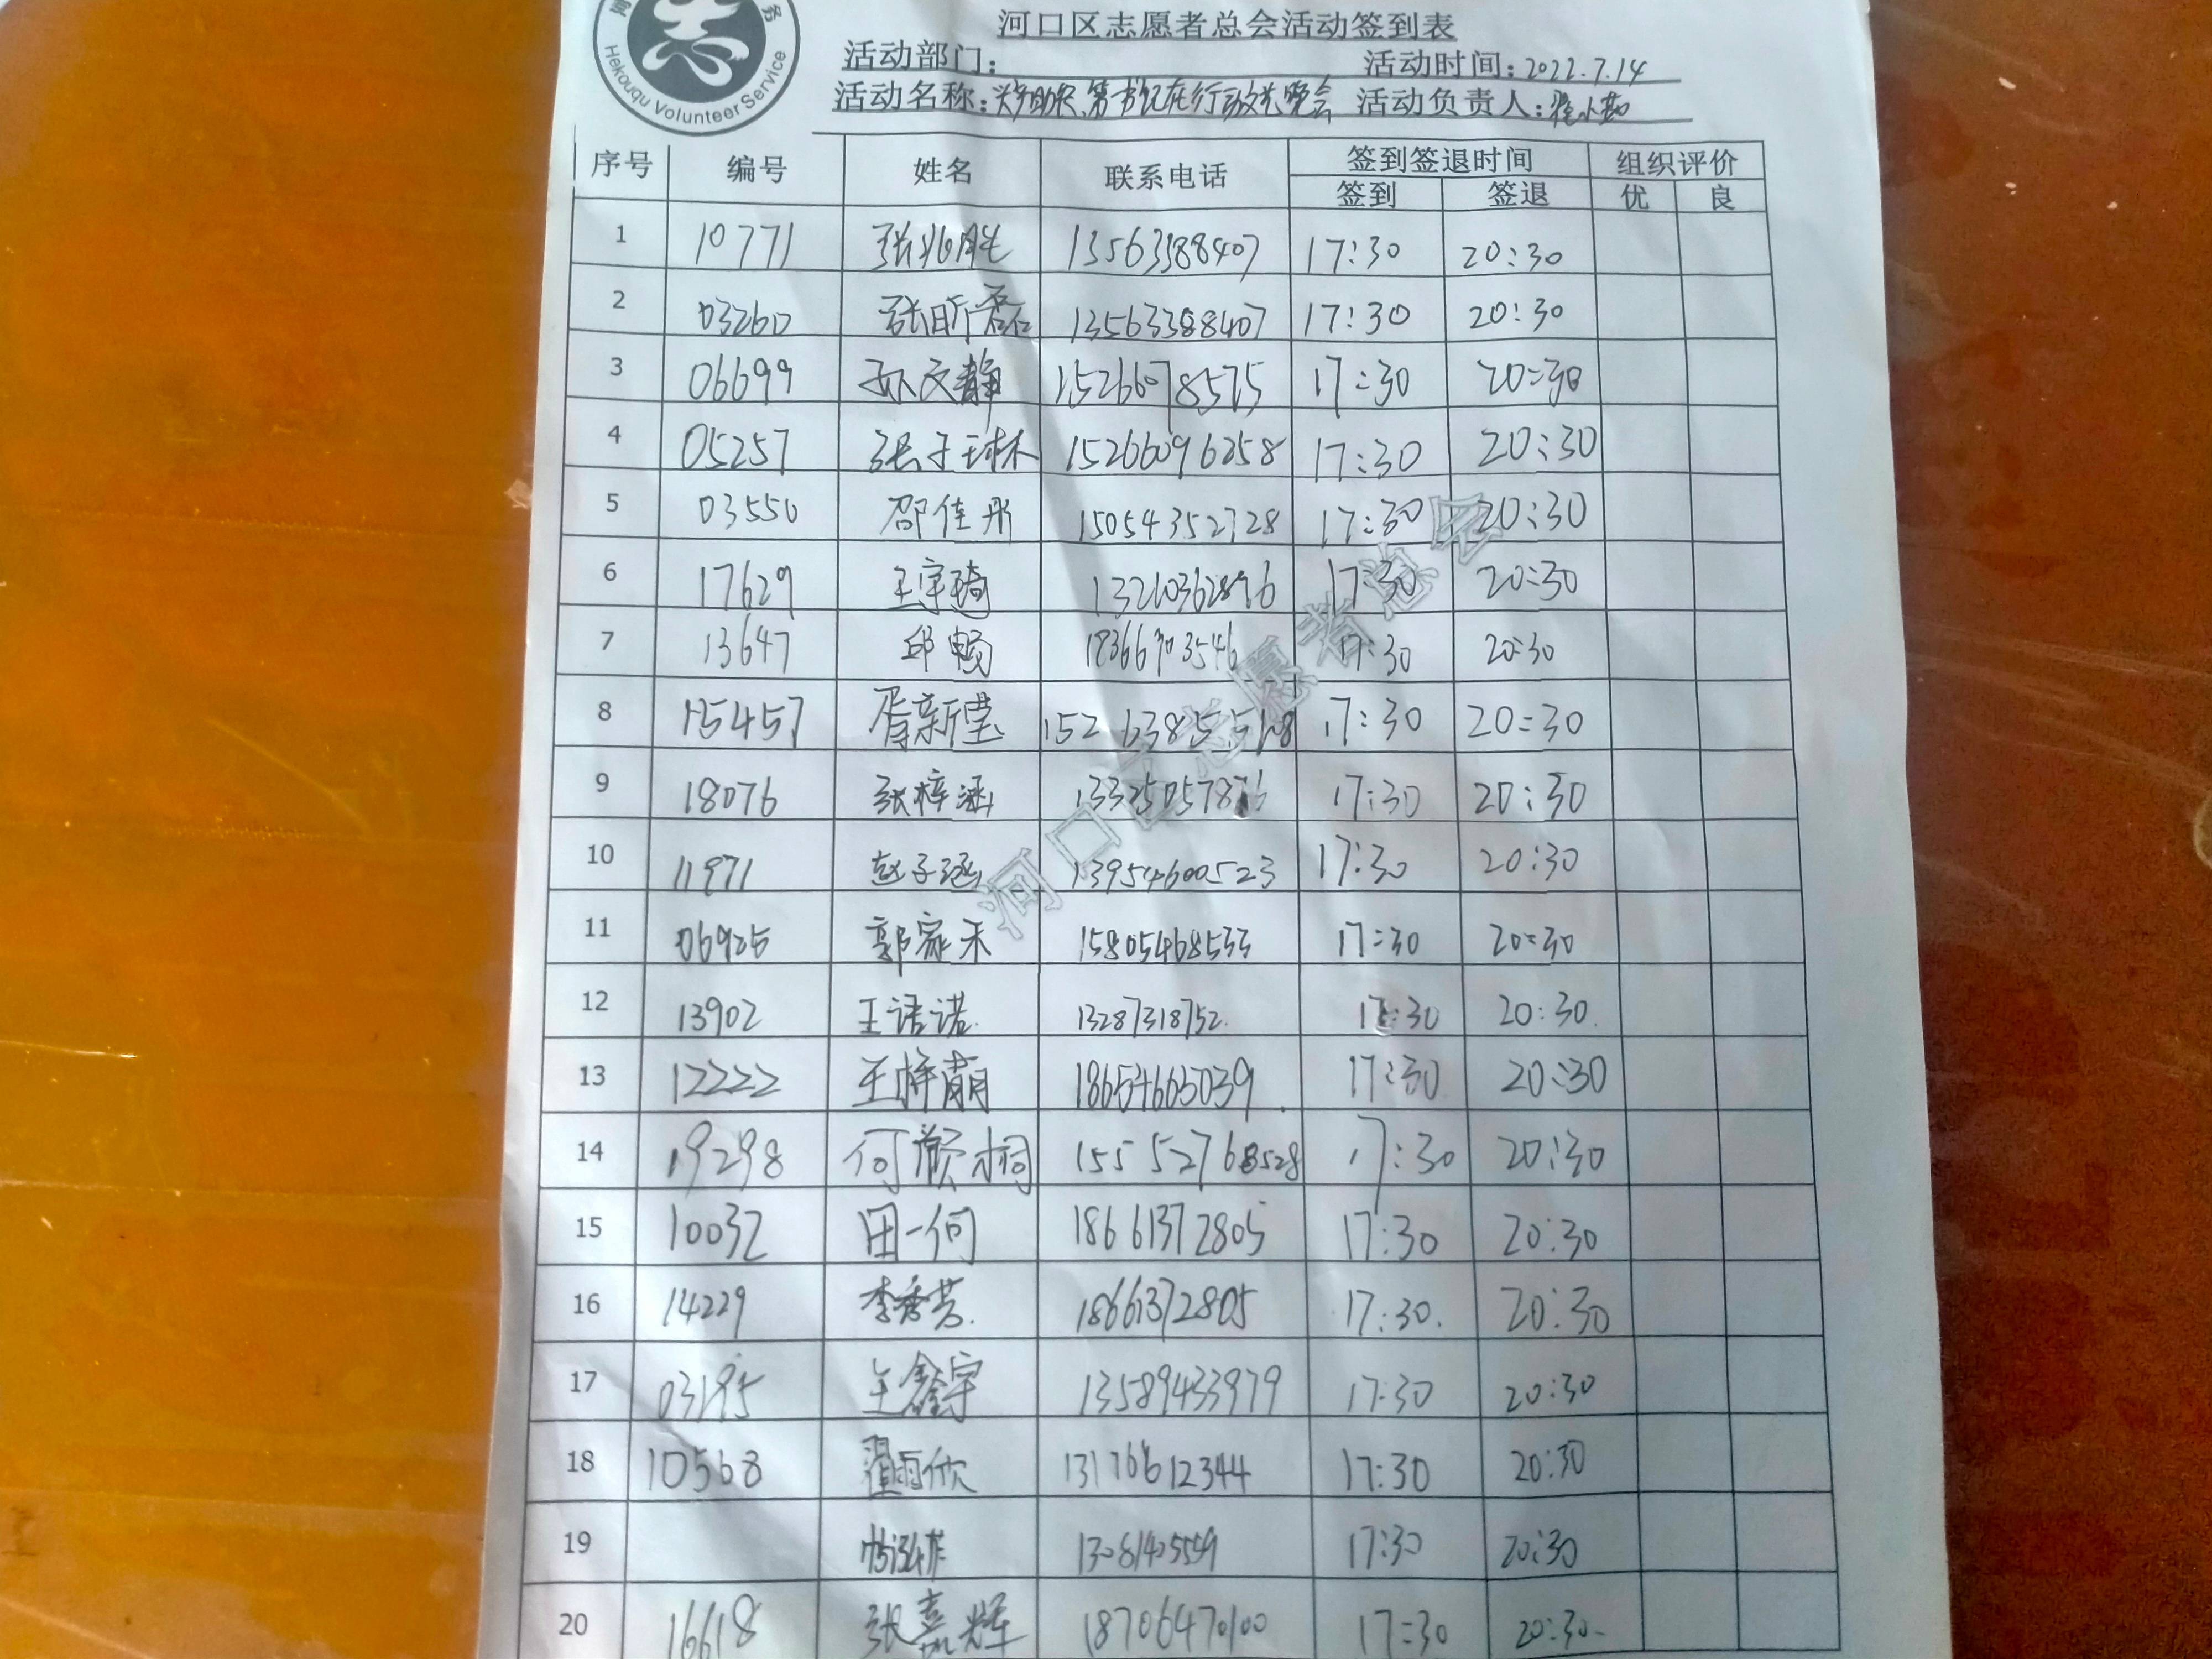 Hekouqu Volunteer Service
河口区志愿者总会活动签到表
活动部门: 活动时间:2022.7.14
活动名称: 第一书记在行动文艺晚会 活动负责人:
序号 编号 姓名 联系电话 签到签退时间 组织评价
签到 签退 优 良
1 10771 张兆胜 13563388407 17:30 20:30
2 03260 张昕磊 13563388407 17:30 20:30
3 06699 孙文静 15266078575 17:30 20:30
4 05257 张子琳 15266096258 17:30 20:30
5 03550 邵佳彤 15054352728 17:30 20:30
6 17629 王宇琦 13210362896 17:30 20:30
7 13647 邱畅 18366703546 17:30 20:30
8 15457 胥新莹 17:30 20:30
9 18076 张梓涵 17:30 20:30
10 11971 赵子涵 13954600523 17:30 20:30
11 06925 郭家禾 15805468533 17:30 20:30
12 13902 王诺诺 13287318752 17:30 20:30
13 12222 王梓萌 18654665039 17:30 20:30
14 19298 何颜桐 15552768528 17:30 20:30
15 10032 田一何 18661372805 17:30 20:30
16 14229 李秀芳 18661372805 17:30 20:30
17 03195 王鑫宇 13589433979 17:30 20:30
18 10568 翟雨欣 13176612344 17:30 20:30
19 13081405559 17:30 20:30
20 16618 张嘉辉 18706470100 17:30 20:30
河口区志愿者总会